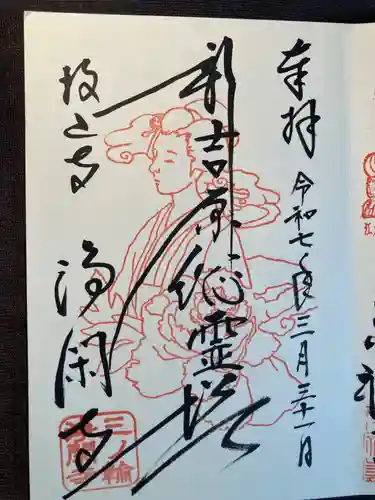 奉拝 令和七年三月三十一日
新吉原総霊塔
投込寺
浄閑寺
三ノ輪
浄閑寺